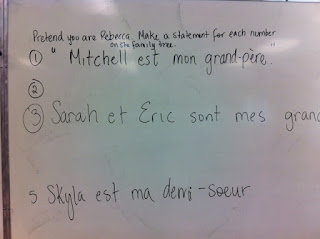 Pretend you are Rebecca. Make a statement for each number
on the family tree.
① "Mitchell est mon grand-père."
②
③ Sarah et Eric sont mes grand
5 Skyla est ma demi-soeur